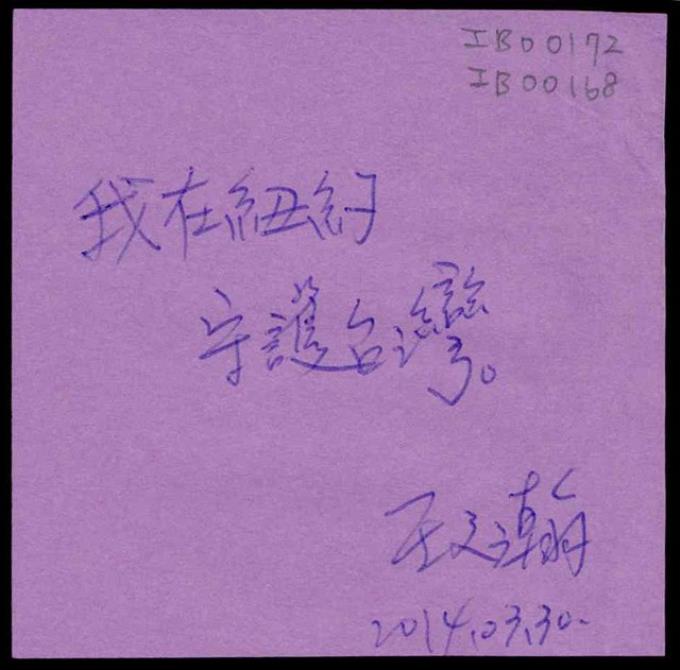 IB00172
IB00168
我在紐約
守護台灣。
王文瀚
2014.03.30.